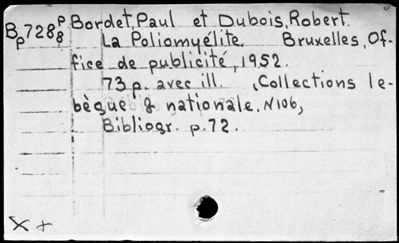 Bp728 P8 Bordet, Paul et Dubois, Robert.
La Poliomyélite. Bruxelles, Of-
fice de publicité, 1952.
73 p. avec ill. , Collections le-
bègue & nationale. N106,
Bibliogr. p. 72.
X +